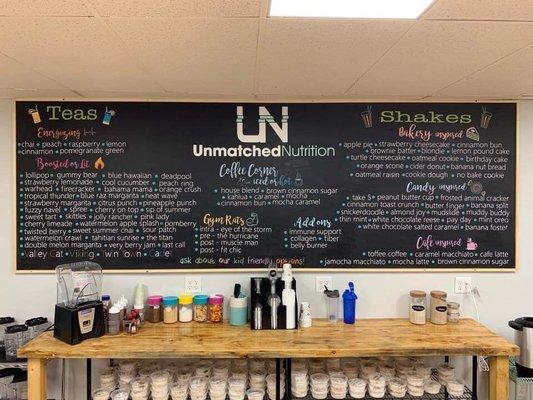 Teas
Energizing
chai • peach • raspberry • lemon
cinnamon • pomegranate green
Boosted or Lit
lollipop • gummy bear • blue hawaiian • deadpool
strawberry lemonade • cool cucumber • peach ring
warhead • firecracker • bahama mama • orange crush
tropical thunder • blue raz margarita • heat wave
strawberry margarita • citrus punch • pineapple punch
fuzzy navel • spree • cherry on top • sons of summer
sweet tart • skittles • jolly rancher • pink lady
cherry limeade • watermelon apple splash • pomberry
twisted berry • sweet summer chai • sour patch
watermelon crawl • tahitian sunrise • the titan
double melon margarita • very berry jam • last call
alley Cat • Viking • Twin Town • Cadet
UN
Unmatched Nutrition
Coffee Corner
iced or hot
house blend • brown cinnamon sugar
kahlua • caramel • mocha
cinnamon bun • mocha caramel
Gym Rats
infra - eye of the storm
pre - the hurricane
post - muscle man
post - fit chic
Add ons
immune support
collagen • fiber
belly burner
ask about our kid friendly options!
Shakes
Bakery inspired
apple pie • strawberry cheesecake • cinnamon bun
brownie batter • blondie • lemon pound cake
turtle cheesecake • oatmeal cookie • birthday cake
orange scone • cider donut • banana nut bread
oatmeal raisin • cookie dough • no bake cookie
Candy inspired
take 5 • peanut butter cup • frosted animal cracker
cinnamon toast crunch • butter finger • banana split
snickerdoodle • almond joy • mudslide • muddy buddy
thin mint • white chocolate reese • pay day • mint oreo
white chocolate salted caramel • banana foster
Café inspired
toffee coffee • caramel macchiato • cafe latte
jamocha macchiato • mocha latte • brown cinnamon sugar